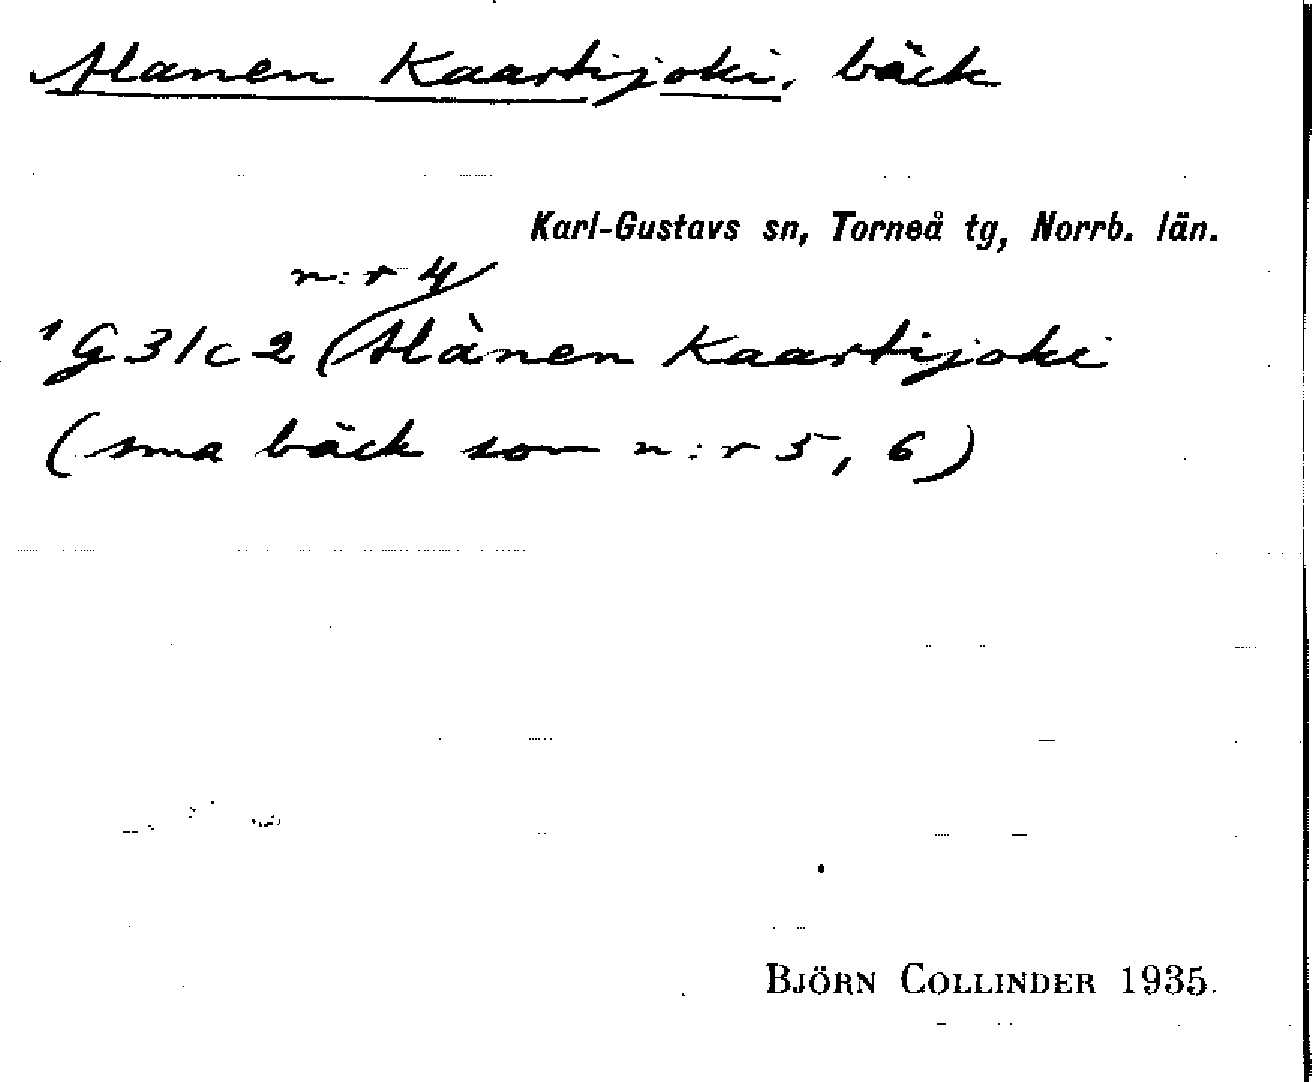 Alanen Kaartijoki, bäck
Karl-Gustavs sn, Torneå tg, Norrb. län.
n:r 4
¹G31c2 Alànen Kaartijoki
(sma bäck som n:r 5, 6)
BJÖRN COLLINDER 1935.